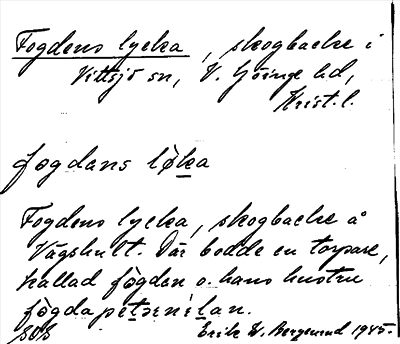 Fogdens lycka, skogbacke i
Vittsjö sn, V. Göinge hd,
Krist. l.
fogdans lo̥ka
Fogdens lycka, skogbacke å
Vågshult. Där bodde en torpare,
kallad fogden o. hans hustru
fogdapetternilan.
Erik W. Bergman 1945.